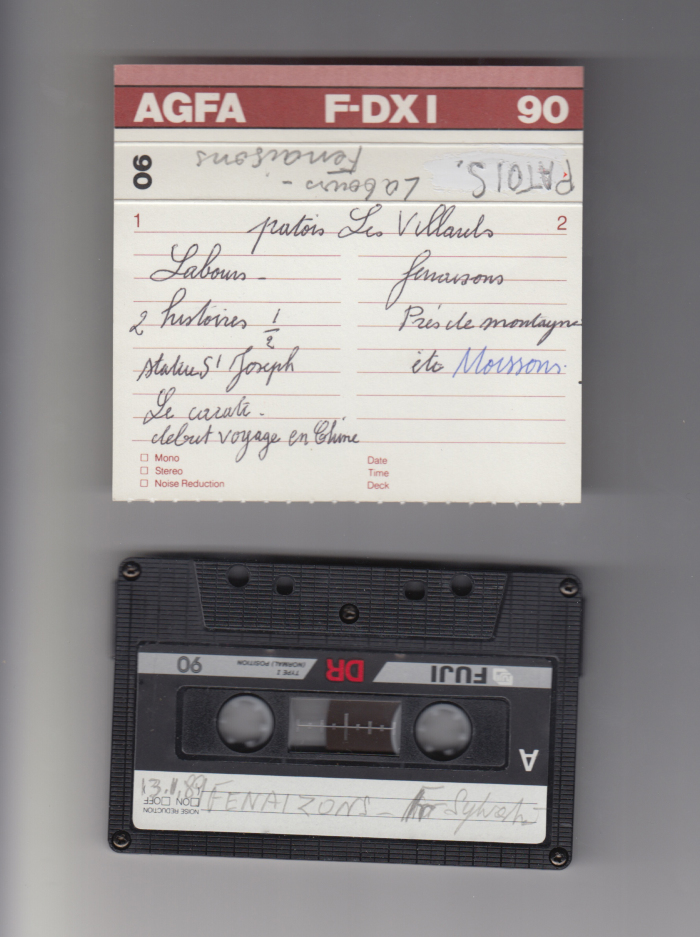 AGFA F-DX I 90
90
PATOIS. Labours - Fenaisons
1 2
patois Les Villards
Labours -
2 histoires 1/2
statue St Joseph
Le carate -
debut voyage en Chine
fenaisons
Prés de montagne
été Moissons.
☐ Mono
☐ Stereo
☐ Noise Reduction
Date
Time
Deck
FUJI DR TYPE I (NORMAL) POSITION 90
A
13.1.89 FENAIZONS -
NOISE REDUCTION
☐ ON ☐ OFF